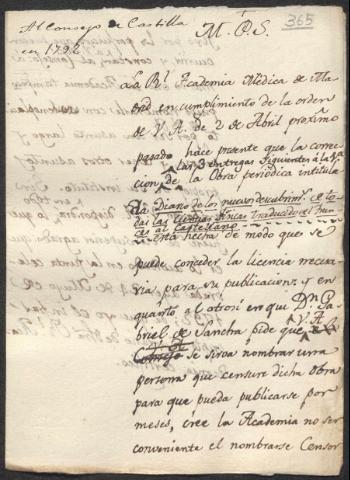 Al Consejo de Castilla
en 1792
M. P. S.
365
La Rl. Academia Médica de Ma
drid en cumplimiento de la orden
de V. A. de 2 de Abril próximo
pasado hace presente que la correc
cion de las 3 entregas siguientes a la 1.a
de la Obra periódica intitula
da Diario de los nuevos descubrim.s de to
das las Ciencias físicas traducido del fran
ces al Castellano
está hecha de modo que se
puede conceder la licencia necesa
ria, para su publicacion; y en
quanto al otrosí en que Dn. Ga
briel de Sancha pide que V. A.
Consejo se sirva nombrar una
persona que censure dicha Obra
para que pueda publicarse por
meses, crée la Academia no ser
conveniente el nombrarse Censor